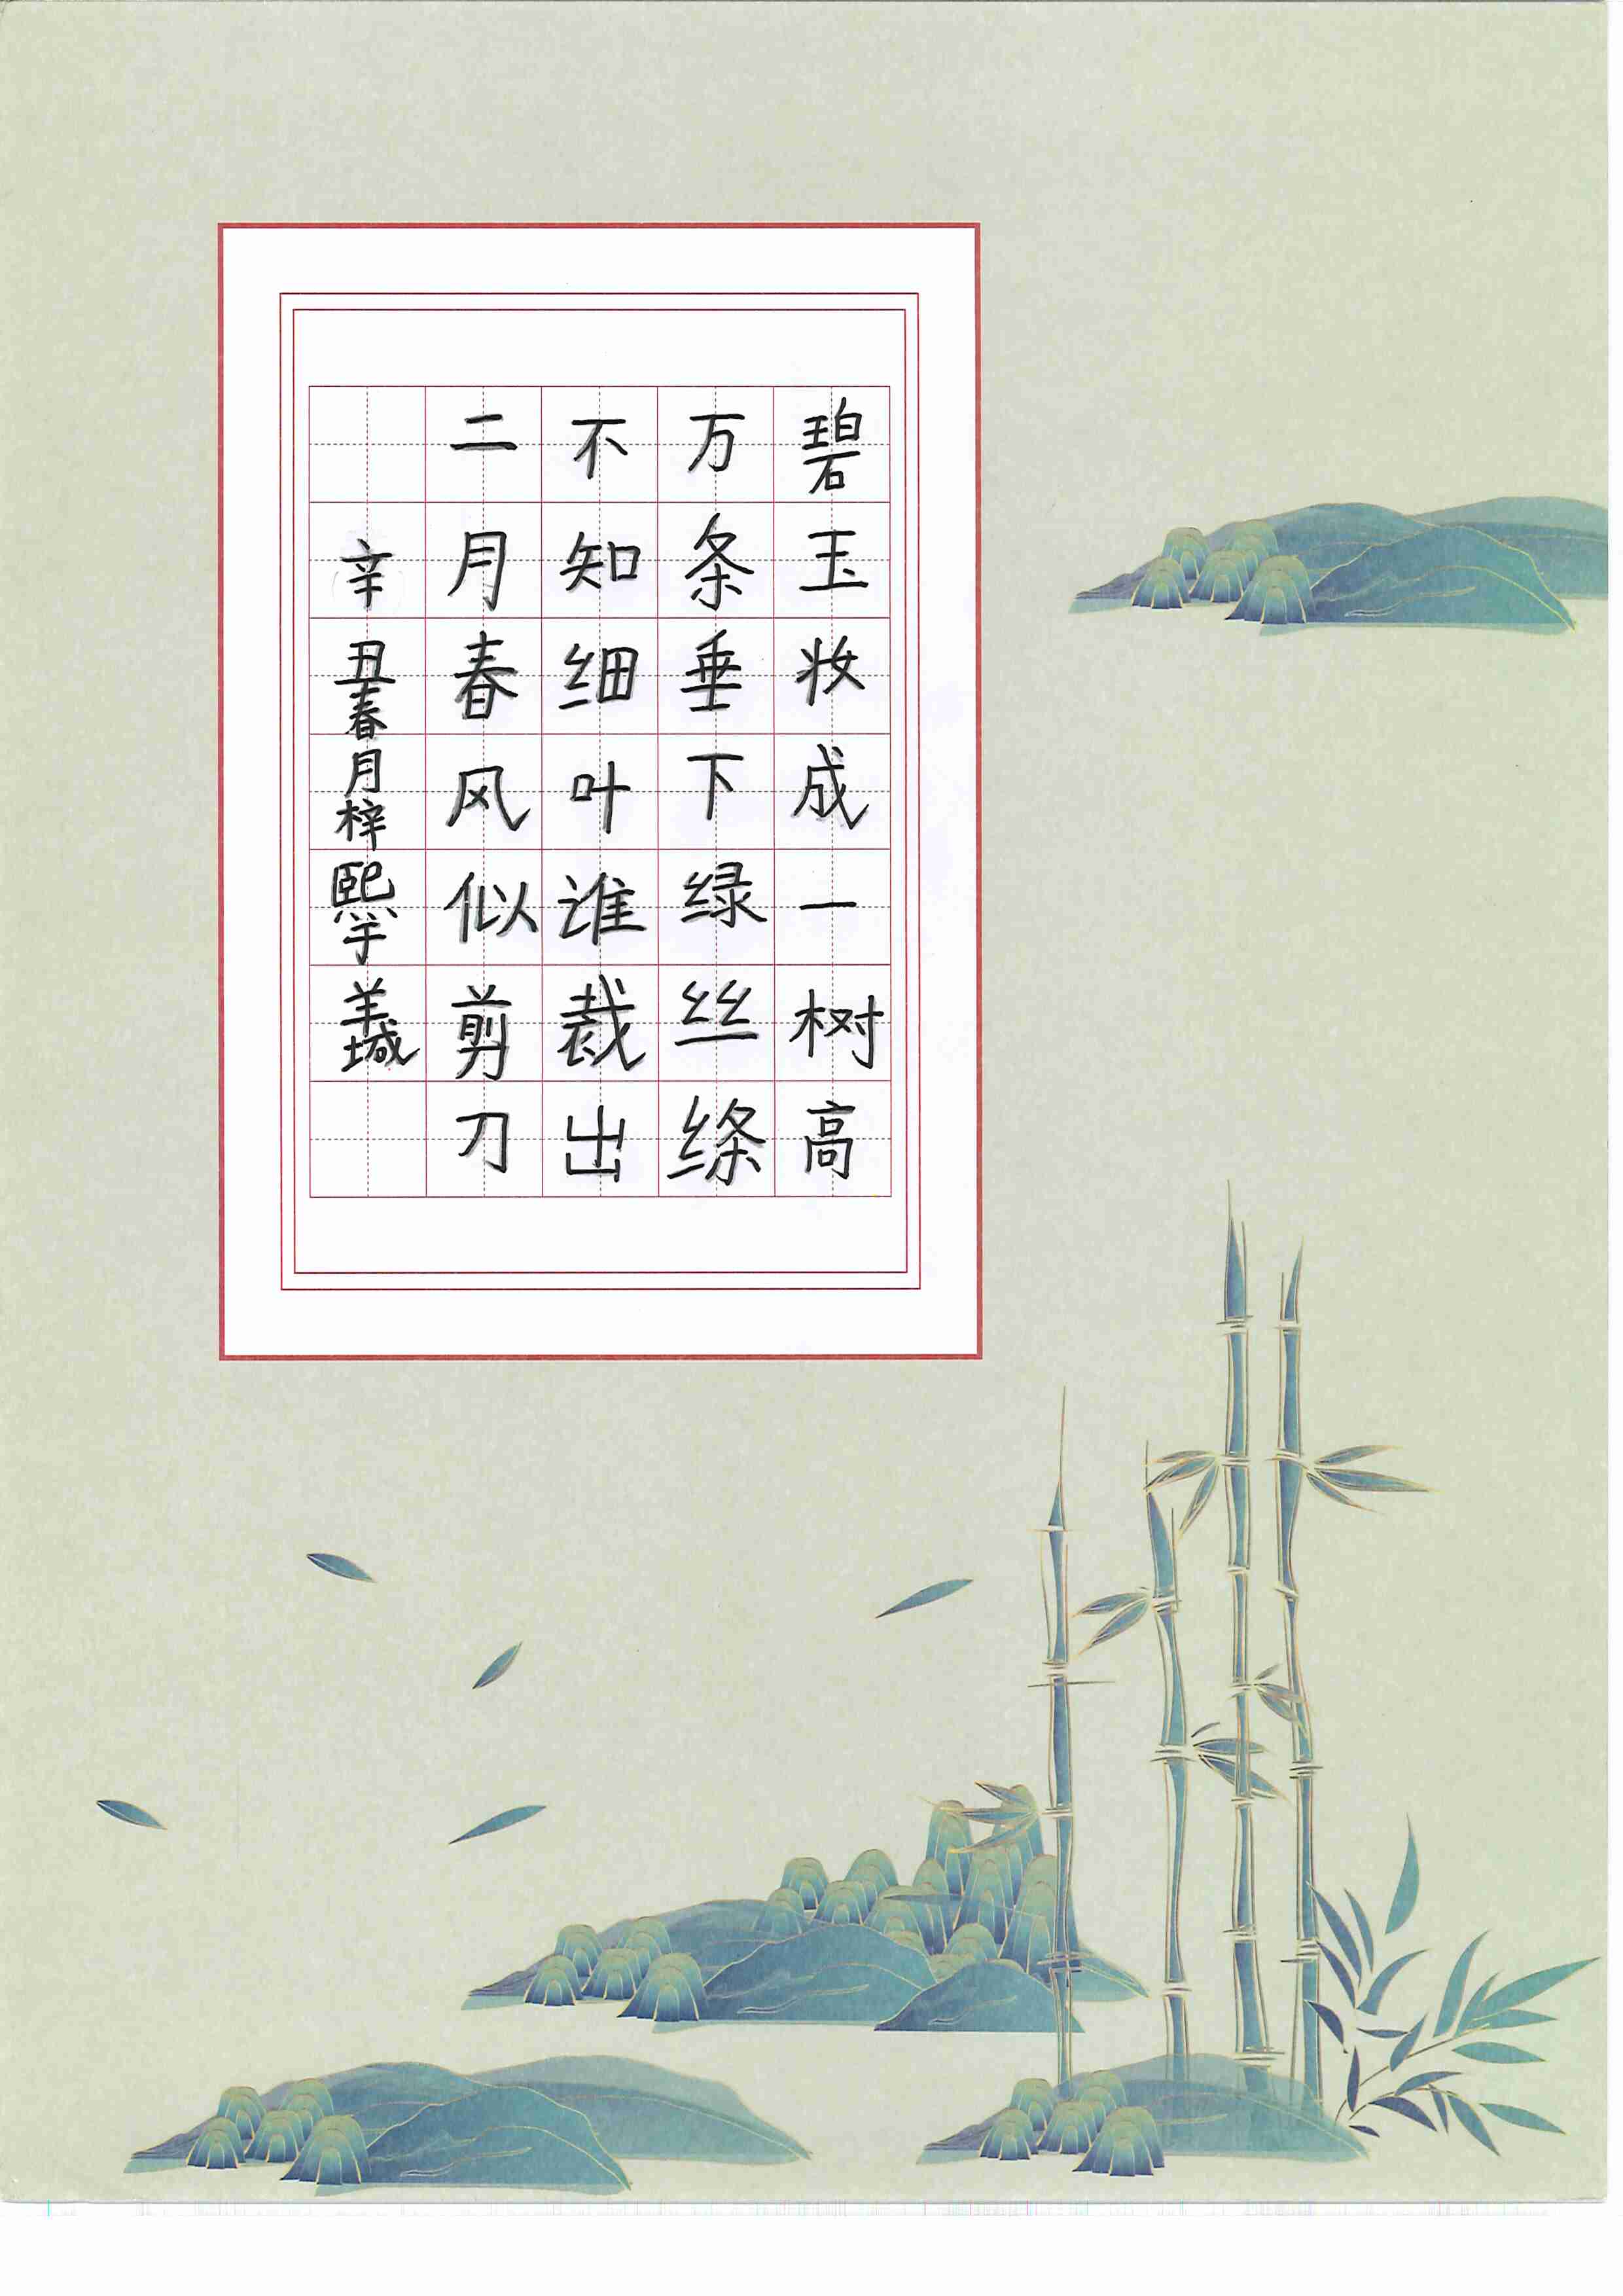 碧玉妆成一树高
万条垂下绿丝绦
不知细叶谁裁出
二月春风似剪刀
辛丑春月梓熙于羊城